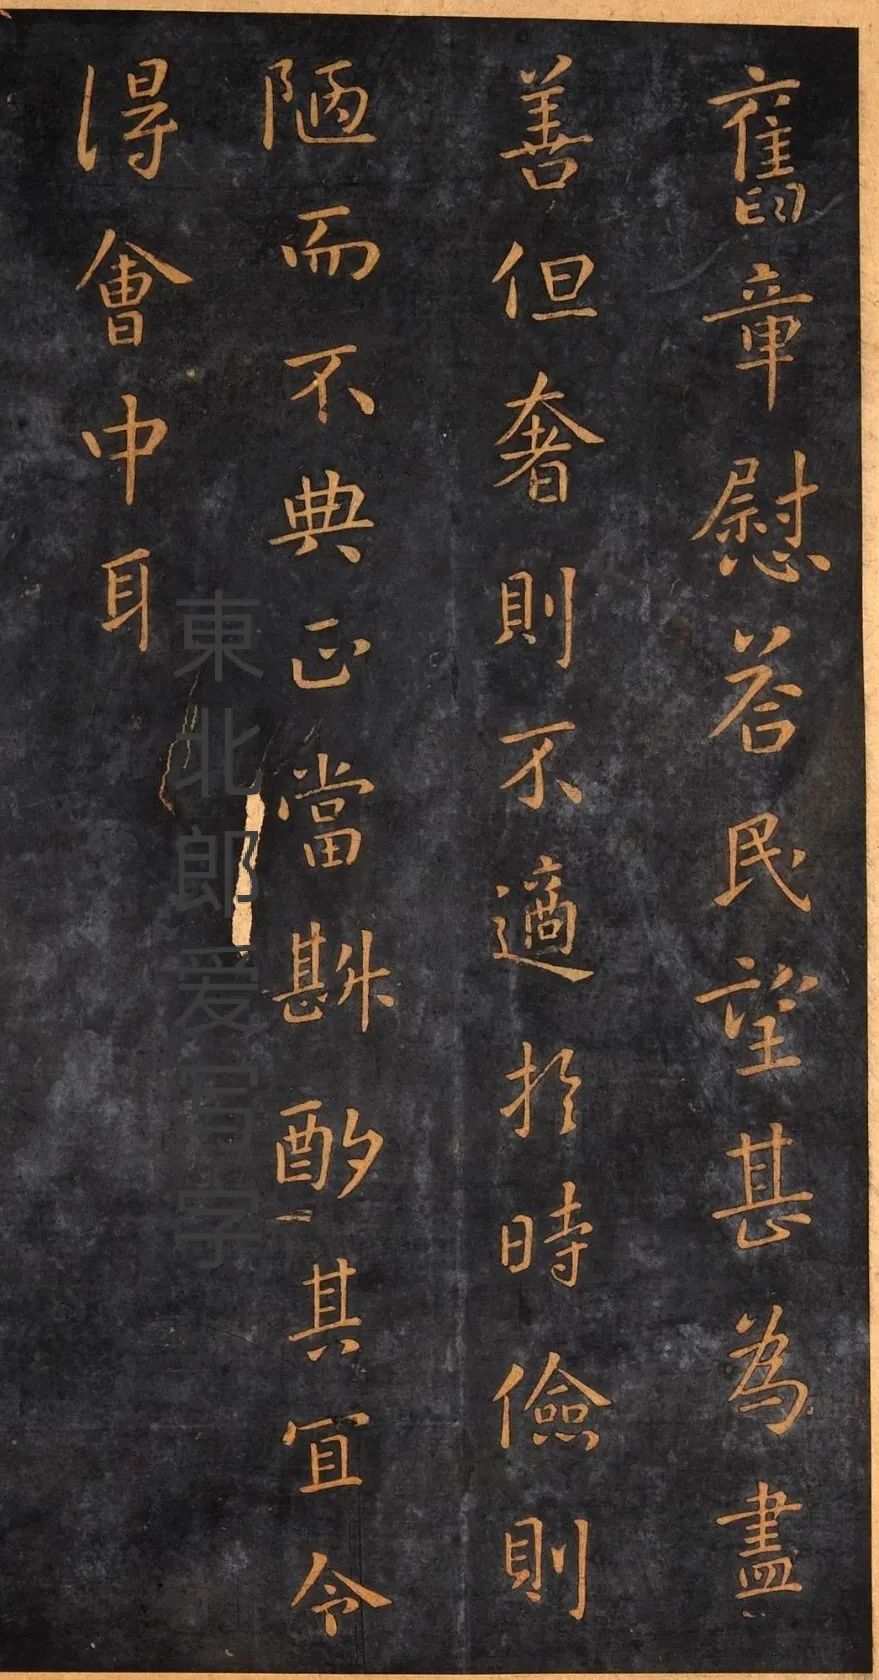 舊章慰荅民望甚為盡
善但奢則不適於時儉則
陋而不典正當斟酌其宜令
得會中耳
東北郎爱写字